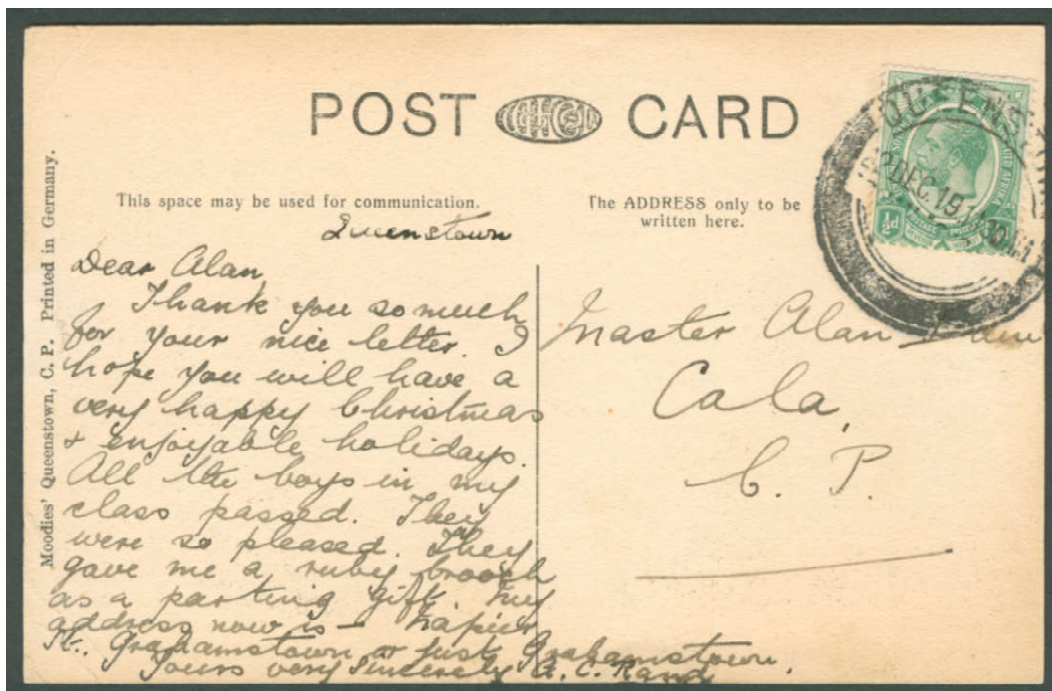 POST CARD
This space may be used for communication.
The ADDRESS only to be
written here.
Moodies' Queenstown, C. P. Printed in Germany.
QUEENSTOWN
DEC. 19
½d
Queenstown
Dear Alan
Thank you so much
for your nice letter. I
hope you will have a
very happy Christmas
& enjoyable holidays.
All the boys in my
class passed. They
were so pleased. They
gave me a ruby brooch
as a parting gift. My
address now is – Napier
St. Grahamstown or just Grahamstown.
Yours very sincerely A. C. Rand
Master Alan
Cala,
C. P.